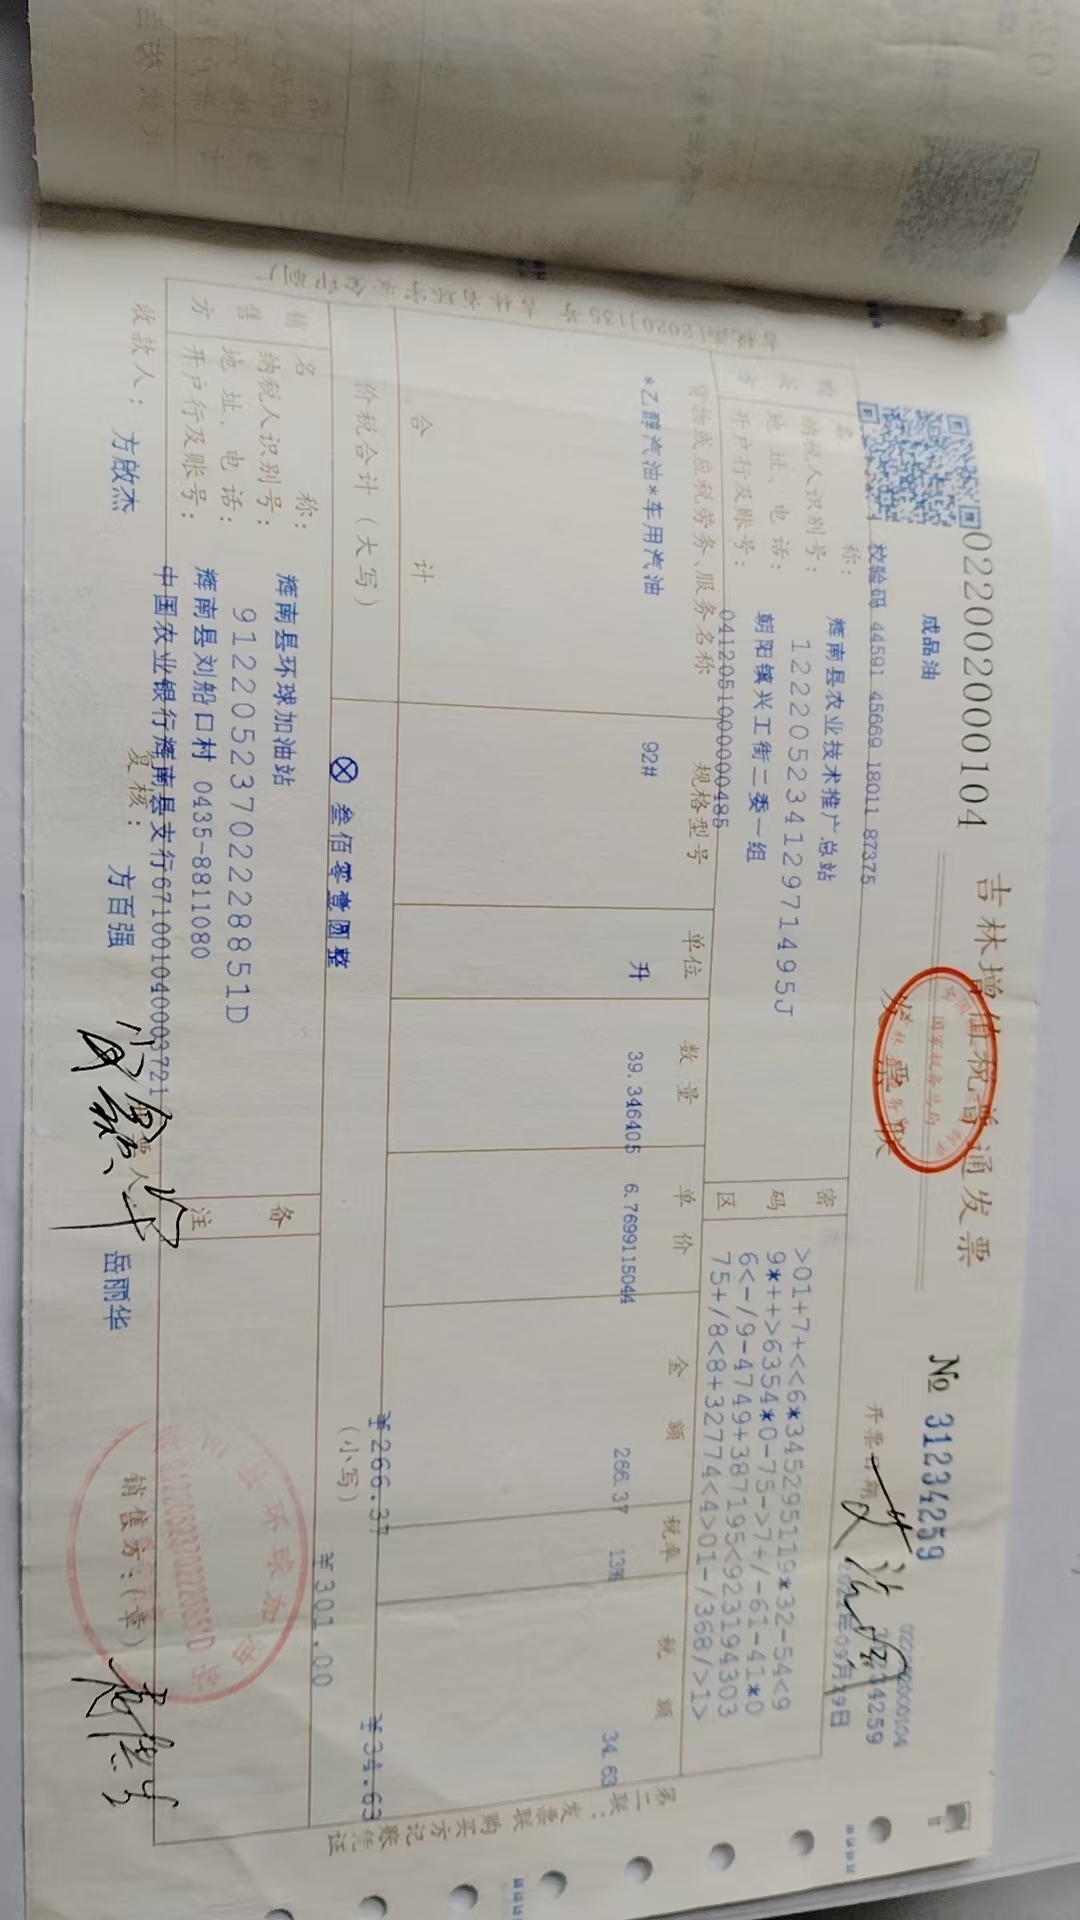 022002000104
吉林增值税普通发票
发票联
№ 31234259
成品油
022002000104
31234259
校验码 44591 45669 18011 87375
开票日期
2022年09月29日
购买方
名称：辉南县农业技术推广总站
纳税人识别号：12220523412971495J
地址、电话：朝阳镇兴工街二委一组
开户行及账号：0412051000000485
密码区
>01+7+<<6*345295119*32-54<9
9*++>6354*0-75->7+/-61-41*0
6<-/9-4749+387195<923194303
75+/8<8+32774<4>01-/368/>1>
货物或应税劳务、服务名称 规格型号 单位 数量 单价 金额 税率 税额
*乙醇汽油*车用汽油 92# 升 39.346405 6.769911504 266.37 13% 34.63
合计 ¥266.37 ¥34.63
价税合计（大写） ⊗ 叁佰零壹圆整 （小写） ¥301.00
销售方
名称：辉南县环球加油站
纳税人识别号：91220523702228851D
地址、电话：辉南县刘船口村 0435-8811080
开户行及账号：中国农业银行辉南县支行6710010400003721
备注
收款人：方啟杰 复核：方百强 岳丽华 销售方：（章）
第二联：发票联 购买方记账凭证